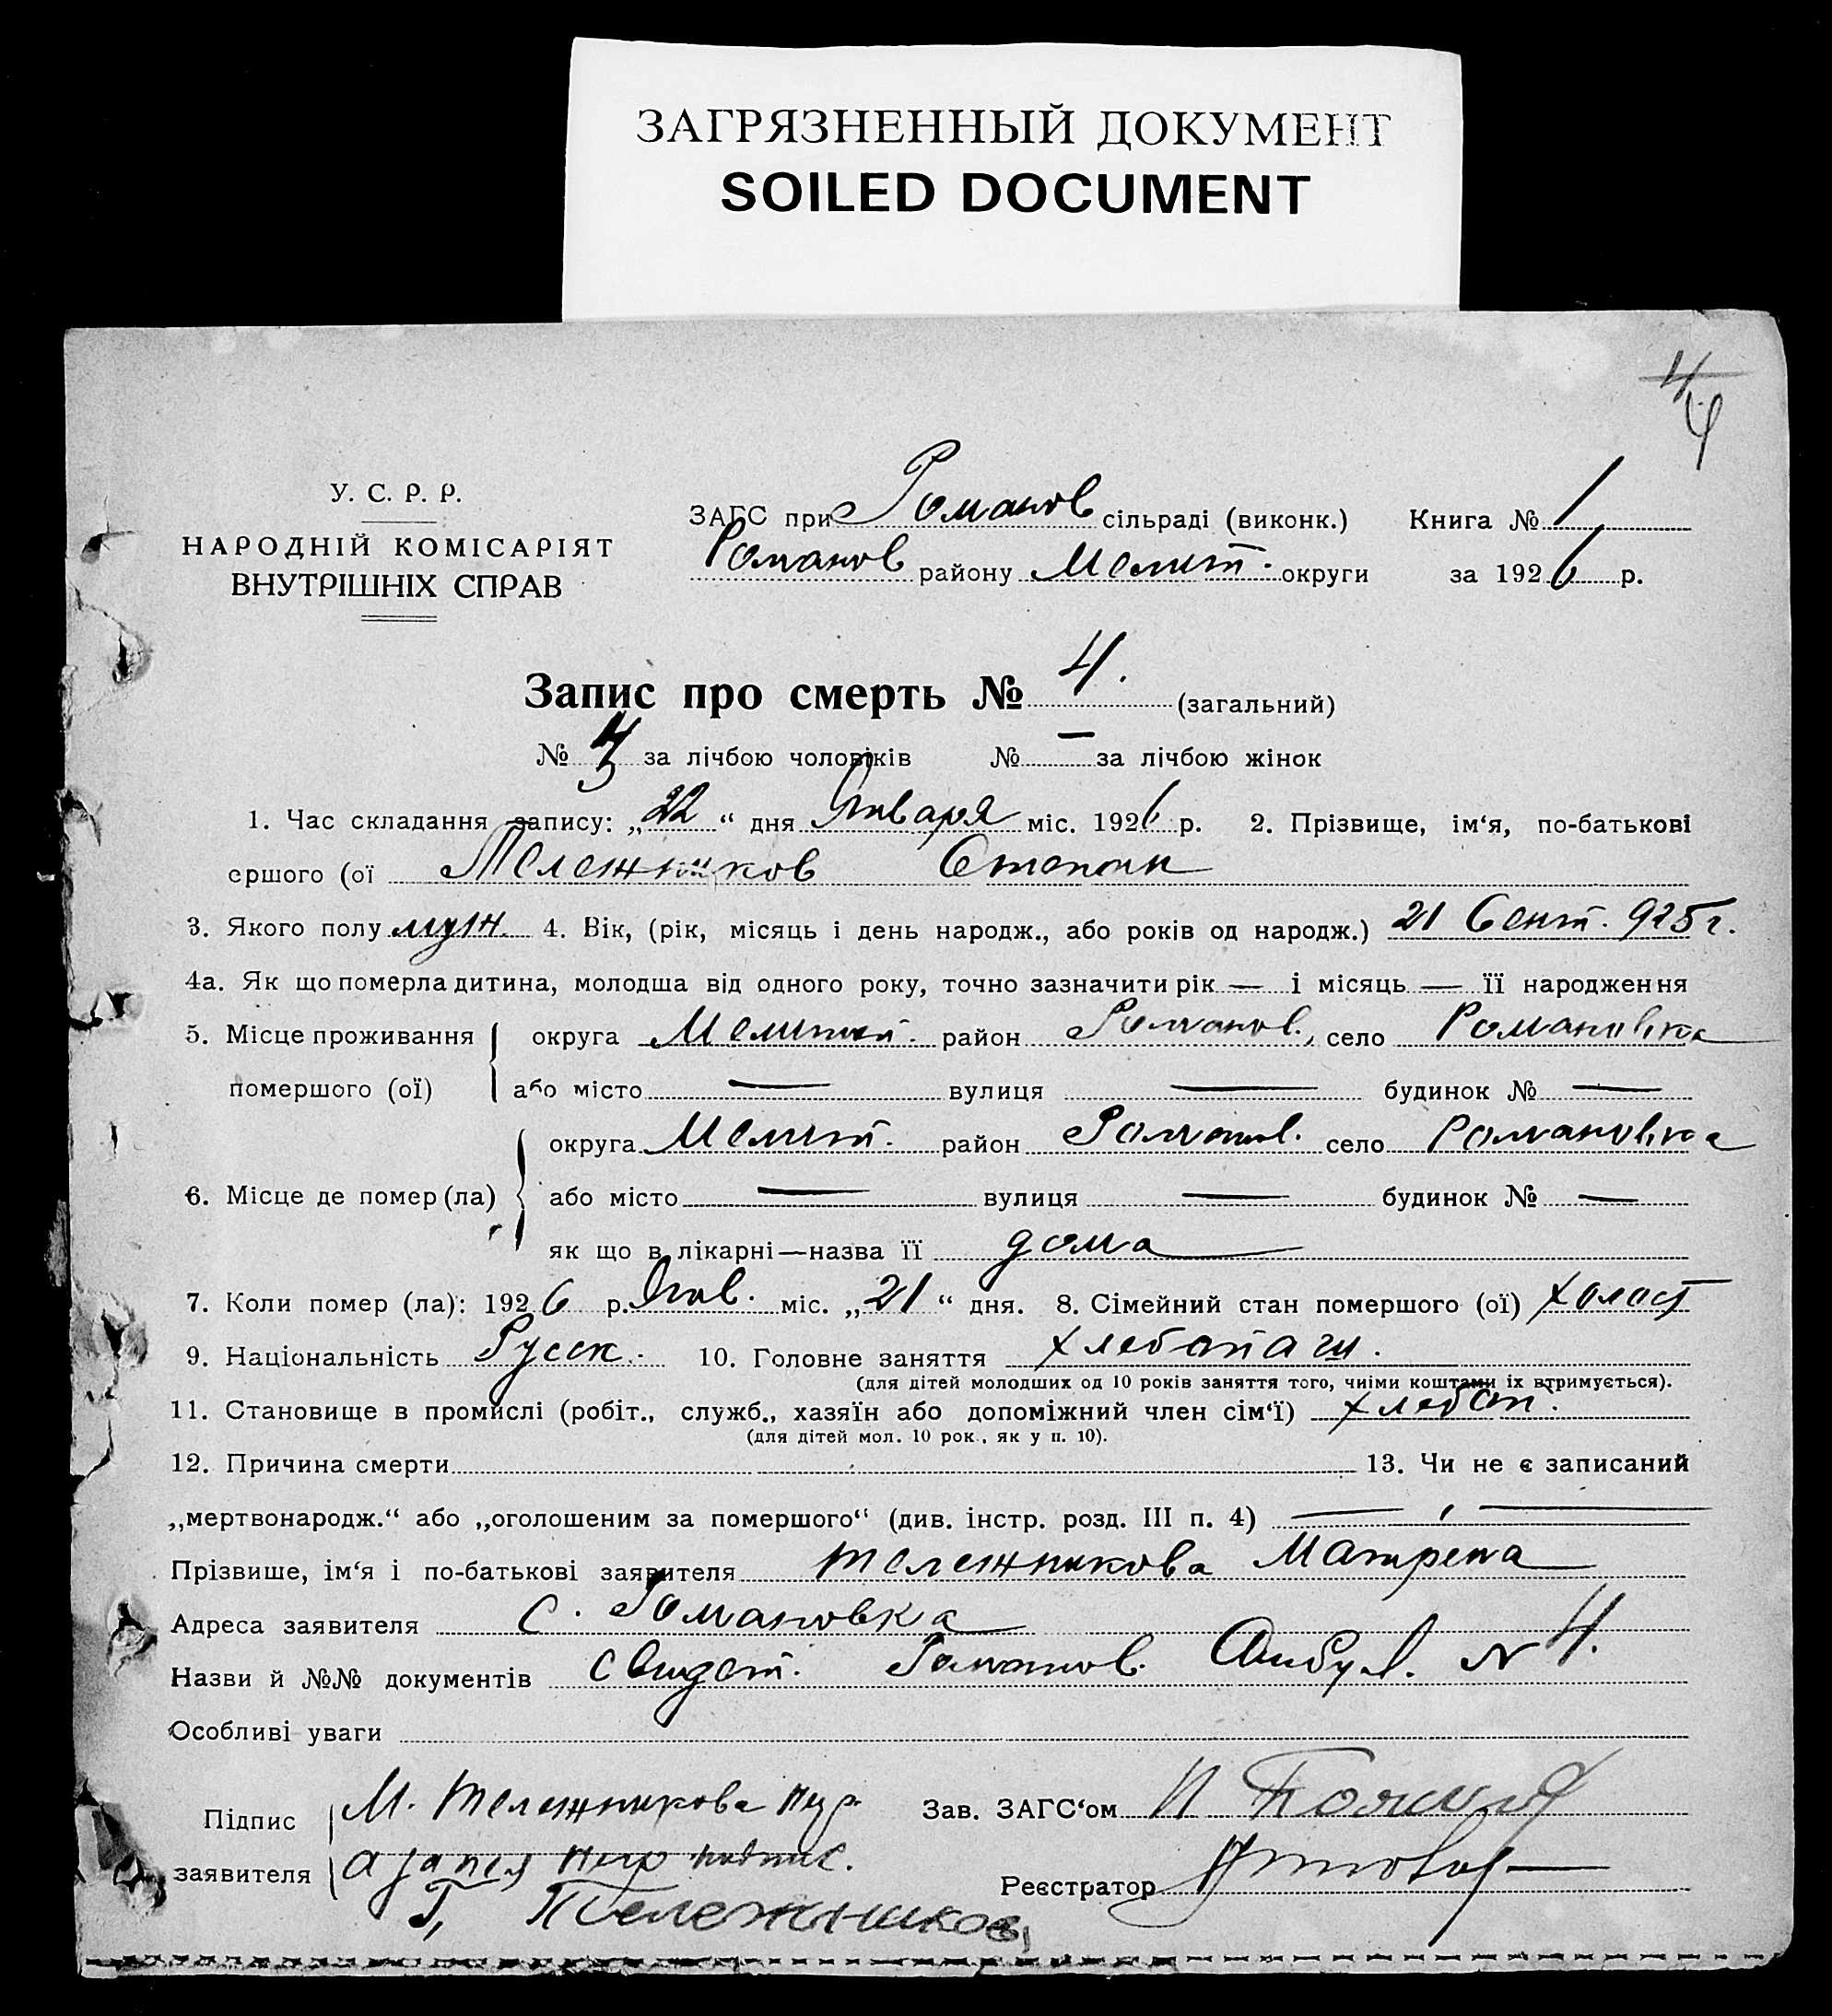 ЗАГРЯЗНЕННЫЙ ДОКУМЕНТ
SOILED DOCUMENT
4
4
У. С. Р. Р.
НАРОДНІЙ КОМІСАРІЯТ
ВНУТРІШНІХ СПРАВ
ЗАГС при Романов сільраді (виконк.) Книга № 1
Романов району Мелит. округи за 1926 р.
Запис про смерть № 4. (загальний)
№ 3 за лічбою чоловіків № — за лічбою жінок
1. Час складання запису: „22“ дня Января міс. 1926 р. 2. Прізвище, ім‘я, по-батькові
ершого (ої Тележников Степан
3. Якого полу муж. 4. Вік, (рік, місяць і день народж., або років од народж.) 21 Сент. 925 г.
4а. Як що померла дитина, молодша від одного року, точно зазначити рік — і місяць — її народження
5. Місце проживання округа Мелитоп. район Романов. село Романовка
помершого (ої) або місто — вулиця — будинок № —
округа Мелит. район Романов. село Романовка
6. Місце де помер (ла) або місто — вулиця — будинок № —
як що в лікарні—назва її дома
7. Коли помер (ла): 1926 р. Янв. міс. „21“ дня. 8. Сімейний стан помершого (ої) холост
9. Національність Русск. 10. Головне заняття хлебопаш.
(для дітей молодших од 10 років заняття того, чиїми коштами їх втримується).
11. Становище в промислі (робіт., служб., хазяїн або допоміжний член сім‘ї) хлебоп.
(для дітей мол. 10 рок., як у п. 10).
12. Причина смерти 13. Чи не є записаний
„мертвонародж.“ або „оголошеним за помершого“ (див. інстр. розд. III п. 4) — —
Прізвище, ім‘я і по-батькові заявителя Тележникова Матрена
Адреса заявителя с. Романовка
Назви й №№ документів свидет. Романов. Амбул. N 4.
Особливі уваги
Підпис М. Тележникова Зав. ЗАГС‘ом И
заявителя а за нея подпис. Реєстратор
Тележников